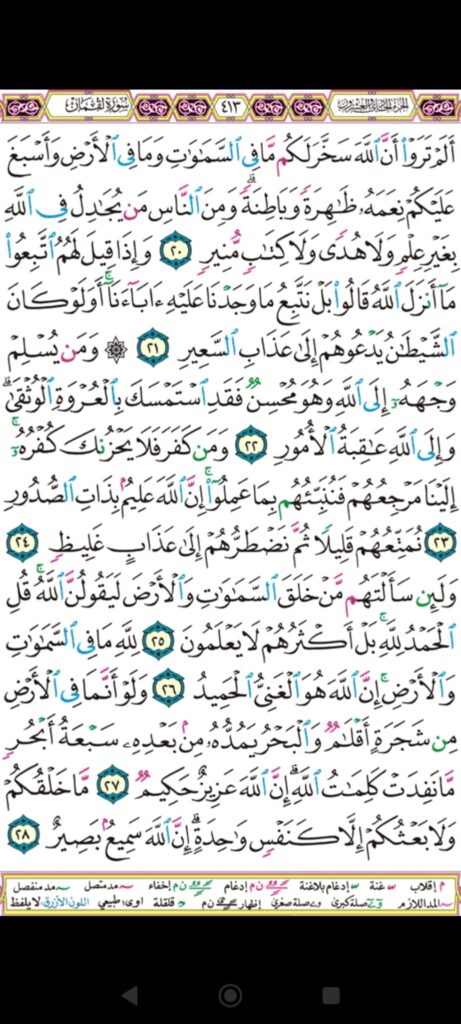 الجزء الحادي والعشرون ٤١٣ سورة لقمان
أَلَمْ تَرَوْا۟ أَنَّ ٱللَّهَ سَخَّرَ لَكُم مَّا فِى ٱلسَّمَٰوَٰتِ وَمَا فِى ٱلْأَرْضِ وَأَسْبَغَ
عَلَيْكُمْ نِعَمَهُۥ ظَٰهِرَةً وَبَاطِنَةً ۗ وَمِنَ ٱلنَّاسِ مَن يُجَٰدِلُ فِى ٱللَّهِ
بِغَيْرِ عِلْمٍ وَلَا هُدًى وَلَا كِتَٰبٍ مُّنِيرٍ ٢٠ وَإِذَا قِيلَ لَهُمُ ٱتَّبِعُوا۟
مَآ أَنزَلَ ٱللَّهُ قَالُوا۟ بَلْ نَتَّبِعُ مَا وَجَدْنَا عَلَيْهِ ءَابَآءَنَآ ۚ أَوَلَوْ كَانَ
ٱلشَّيْطَٰنُ يَدْعُوهُمْ إِلَىٰ عَذَابِ ٱلسَّعِيرِ ٢١ ۞ وَمَن يُسْلِمْ
وَجْهَهُۥٓ إِلَى ٱللَّهِ وَهُوَ مُحْسِنٌ فَقَدِ ٱسْتَمْسَكَ بِٱلْعُرْوَةِ ٱلْوُثْقَىٰ ۗ
وَإِلَى ٱللَّهِ عَٰقِبَةُ ٱلْأُمُورِ ٢٢ وَمَن كَفَرَ فَلَا يَحْزُنكَ كُفْرُهُۥٓ ۚ
إِلَيْنَا مَرْجِعُهُمْ فَنُنَبِّئُهُم بِمَا عَمِلُوٓا۟ ۚ إِنَّ ٱللَّهَ عَلِيمٌۢ بِذَاتِ ٱلصُّدُورِ
٢٣ نُمَتِّعُهُمْ قَلِيلًا ثُمَّ نَضْطَرُّهُمْ إِلَىٰ عَذَابٍ غَلِيظٍ ٢٤
وَلَئِن سَأَلْتَهُم مَّنْ خَلَقَ ٱلسَّمَٰوَٰتِ وَٱلْأَرْضَ لَيَقُولُنَّ ٱللَّهُ ۚ قُلِ
ٱلْحَمْدُ لِلَّهِ ۚ بَلْ أَكْثَرُهُمْ لَا يَعْلَمُونَ ٢٥ لِلَّهِ مَا فِى ٱلسَّمَٰوَٰتِ
وَٱلْأَرْضِ ۚ إِنَّ ٱللَّهَ هُوَ ٱلْغَنِىُّ ٱلْحَمِيدُ ٢٦ وَلَوْ أَنَّمَا فِى ٱلْأَرْضِ
مِن شَجَرَةٍ أَقْلَٰمٌ وَٱلْبَحْرُ يَمُدُّهُۥ مِنۢ بَعْدِهِۦ سَبْعَةُ أَبْحُرٍ
مَّا نَفِدَتْ كَلِمَٰتُ ٱللَّهِ ۗ إِنَّ ٱللَّهَ عَزِيزٌ حَكِيمٌ ٢٧ مَّا خَلْقُكُمْ
وَلَا بَعْثُكُمْ إِلَّا كَنَفْسٍ وَٰحِدَةٍ ۗ إِنَّ ٱللَّهَ سَمِيعٌۢ بَصِيرٌ ٢٨
م إقلاب غنة إدغام بلاغنة ن م إدغام ن م إخفاء مد متصل مد منفصل
المد اللازم صلة كبرى صلة صغرى إظهار ن م قلقلة اوى: طبيعي اللون الأزرق: لا يلفظ